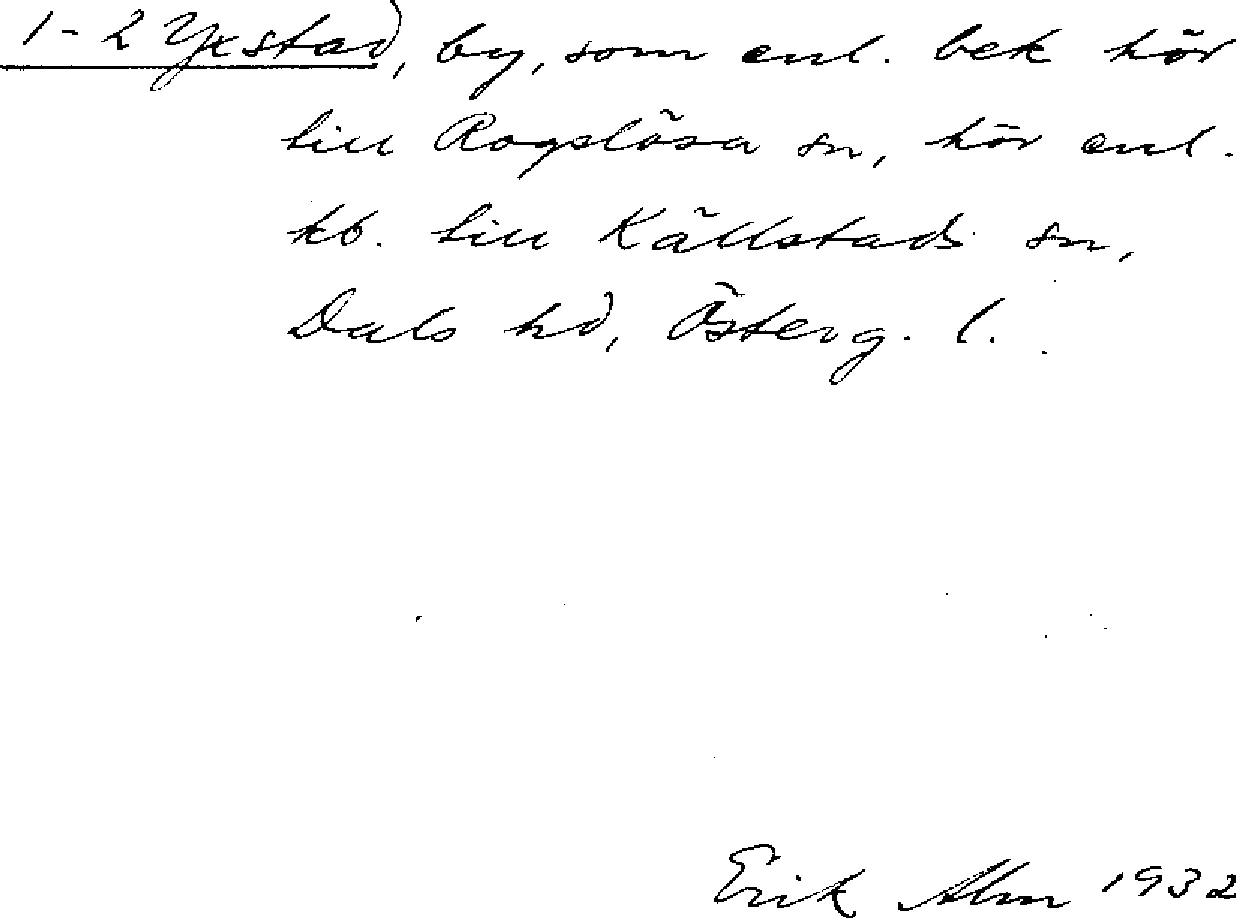 1-2 Yxstad, by, som enl. bek hör
till Rogslösa sn, hör enl.
kb. till Källstads sn,
Dals hd, Österg. l.
Erik Alm 1932